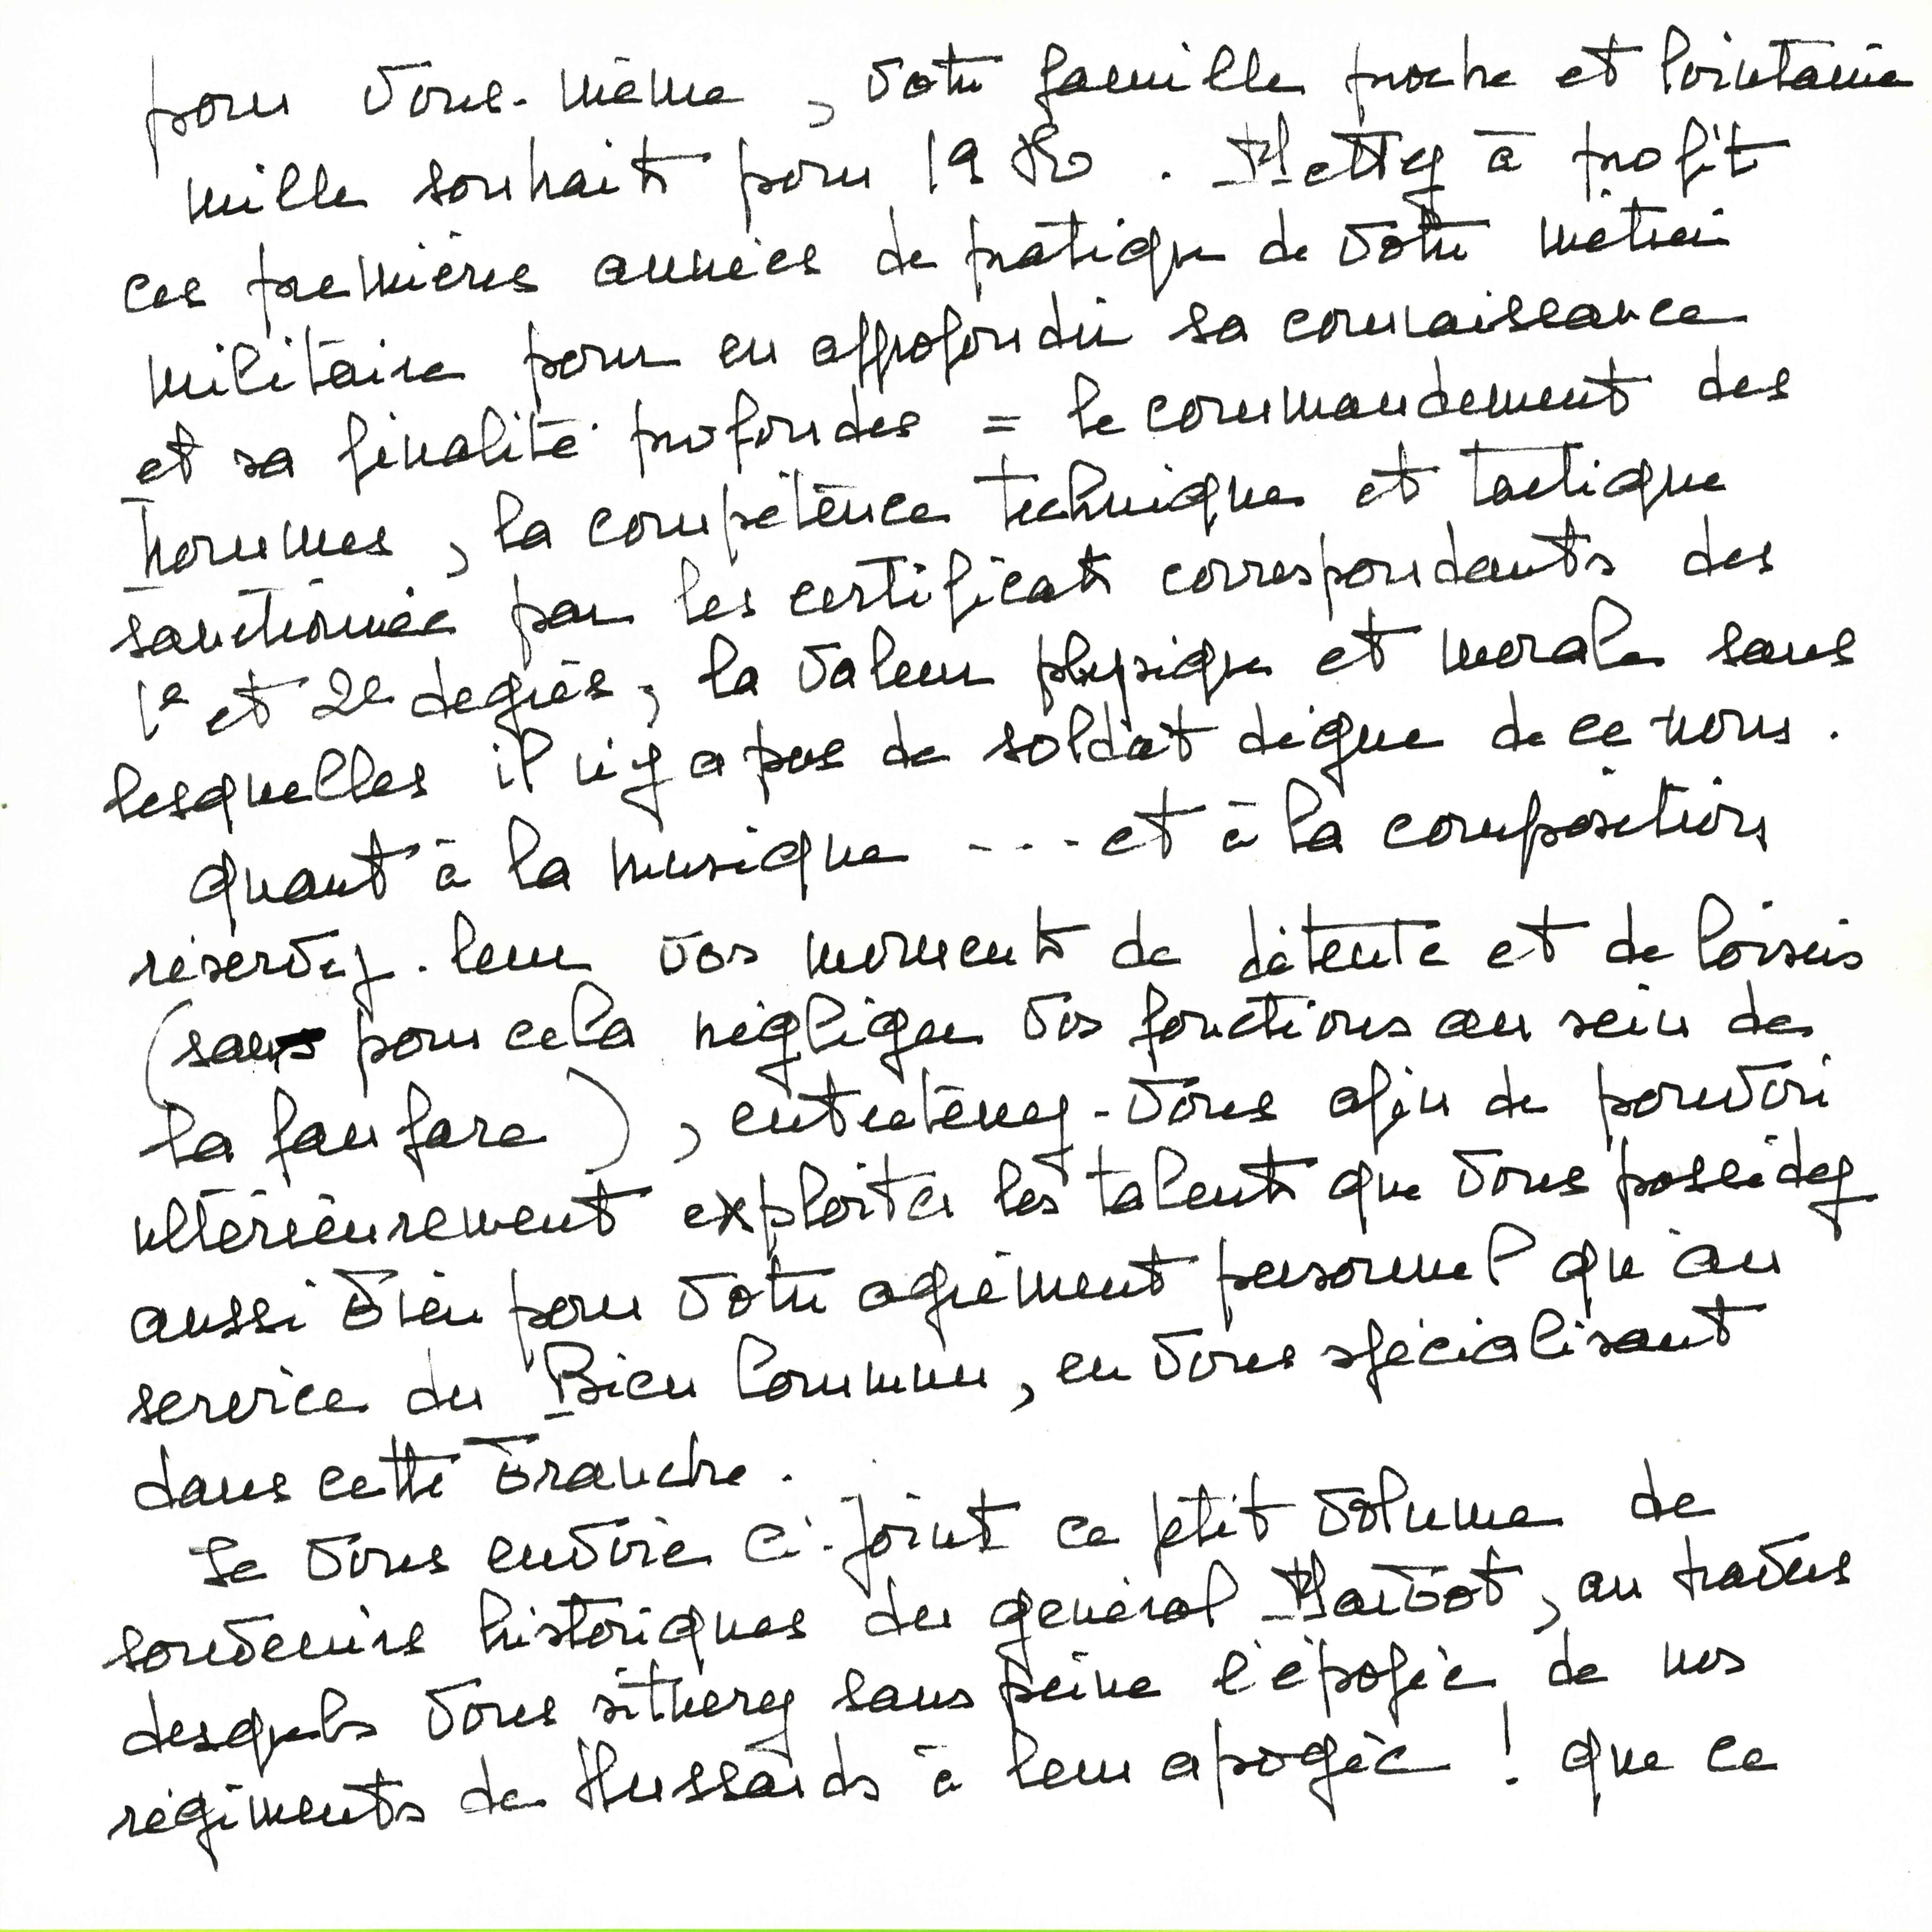 pour vous-même, votre famille proche et lointaine
mille souhaits pour 1980. Mettez à profit
ces premières années de pratique de votre métier
militaire pour en approfondir sa connaissance
et sa finalité profondes = le commandement des
hommes, la compétence technique et tactique
sanctionnée par les certificats correspondants des
1e et 2e degrés, la valeur physique et morale sans
lesquelles il n'y a pas de soldat digne de ce nom.
quant à la musique ---- et à la composition
réservez-leur vos moments de détente et de loisirs
(sans pour cela négliger vos fonctions au sein de
la fanfare), entretenez-vous afin de pouvoir
ultérieurement exploiter les talents que vous possédez
aussi bien pour votre agrément personnel qu'au
service du Bien Commun, en vous spécialisant
dans cette branche.
Je vous envoie ci-joint ce petit volume de
souvenirs historiques du général Marbot, au travers
desquels vous situerez sans peine l'épopée de nos
régiments de Hussards à leur apogée ! que ce